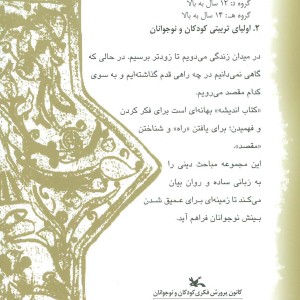 گروه د: ۱۲ سال به بالا
گروه هـ: ۱۴ سال به بالا
۲. اولیای تربیتی کودکان و نوجوانان
در میدان زندگی می‌دویم تا زودتر برسیم. در حالی که
گاهی نمی‌دانیم در چه راهی قدم گذاشته‌ایم و به سوی
کدام مقصد می‌رویم.
«کتاب اندیشه» بهانه‌ای است برای فکر کردن
و فهمیدن؛ برای یافتن «راه» و شناختن
«مقصد».
این مجموعه مباحث دینی را
به زبانی ساده و روان بیان
می‌کند تا زمینه‌ای برای عمیق شدن
بینش نوجوانان فراهم آید.
کانون پرورش فکری کودکان و نوجوانان